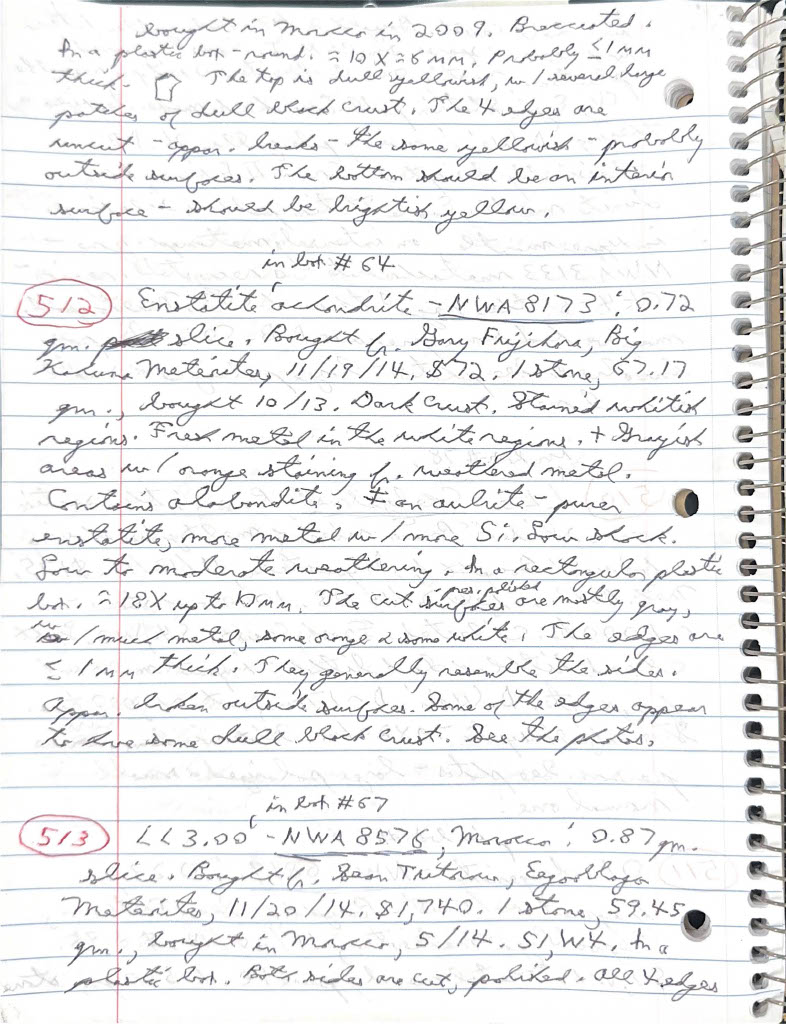 bought in Morocco in 2009. Brecciated.
In a plastic box - round. ≈ 10 X ≈ 6 mm, Probably ≤ 1 mm
thick. The top is dull yellowish, w/ several large
patches of dull black crust. The 4 edges are
uncut - appar. breaks - the same yellowish - probably
outside surfaces. The bottom should be an interior
surface - should be brightish yellow.
in box # 64
512 Enstatite achondrite - NWA 8173 : 0.72
gm. slice. Bought fr. Gary Fujihara, Big
Kahuna Meteorites, 11/19/14. $72. 1 stone, 67.17
gm., bought 10/13. Dark crust. Stained whitish
regions. Fresh metal in the white regions. + Grayish
areas w/ orange staining fr. weathered metal.
Contains alabandite. ≠ an aubrite - purer
enstatite, more metal w/ more Si. Low shock.
Low to moderate weathering. In a rectangular plastic
box. ≈ 18 X up to 10 mm. The cut, pres. polished surfaces are mostly gray,
w/ much metal, some orange & some white. The edges are
≤ 1 mm thick. They generally resemble the sides.
Appar. broken outside surfaces. Some of the edges appear
to have some dull black crust. See the photos.
in box #67
513 LL3.00 - NWA 8576, Morocco : 0.87 gm.
slice. Bought fr. Sean Tutorow, Eegooblago
Meteorites, 11/20/14. $1,740. 1 stone, 59.45
gm., bought in Morocco, 5/14. S1, W4. In a
plastic box. Both sides are cut, polished. All 4 edges